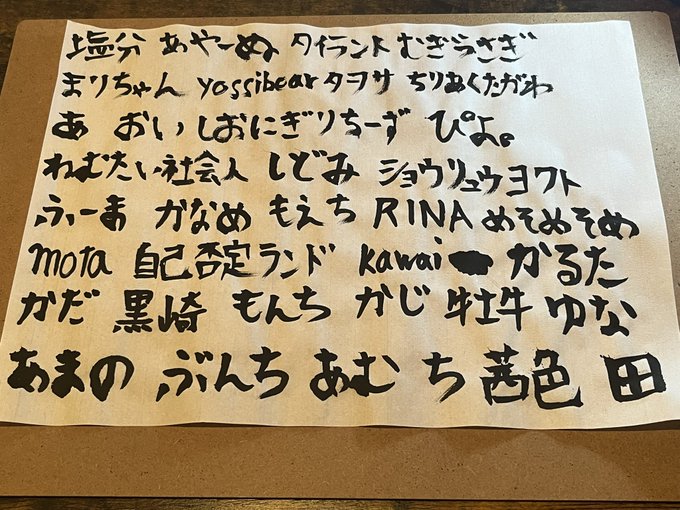 塩分 あやーぬ タイラント むぎうさぎ
まりちゃん yossibear タヲサ ちりあくたがわ
あ おい しおにぎりちーず ぴよ。
ねむたい社会人 しどみ ショウリュウヨワト
ふーま かなめ もえち RINA めそめそめ
mota 自己否定ランド kawai かるた
かだ 黒崎 もんち かじ 牡牛 ゆな
あまの ぶんち あむ ち 茜色 田